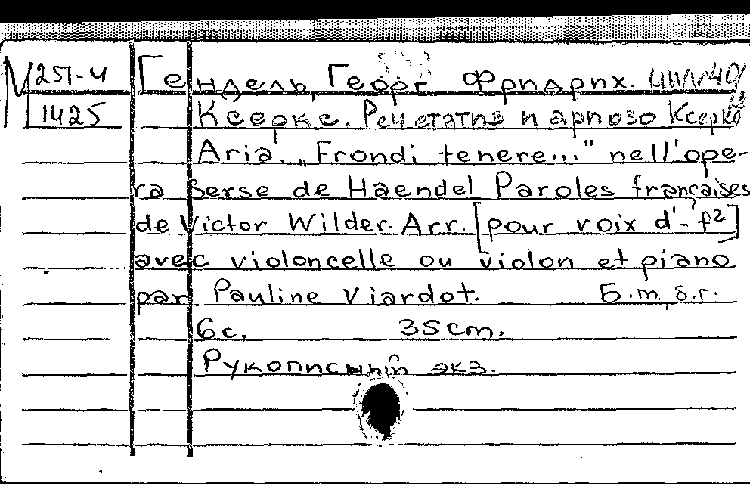 М 251-4 Гендель, Георг Фридрих.
1425 Ксеркс. Речетатив и ариозо Ксеркс
Aria „Frondi tenere..." nell'ope-
ra Serse de Haendel Paroles françaises
de Victor Wilder. Arr. [pour voix d'
avec violoncelle ou violon et piano
par Pauline Viardot. Б.м, б.г.
6с. 35cm.
Рукописный экз.